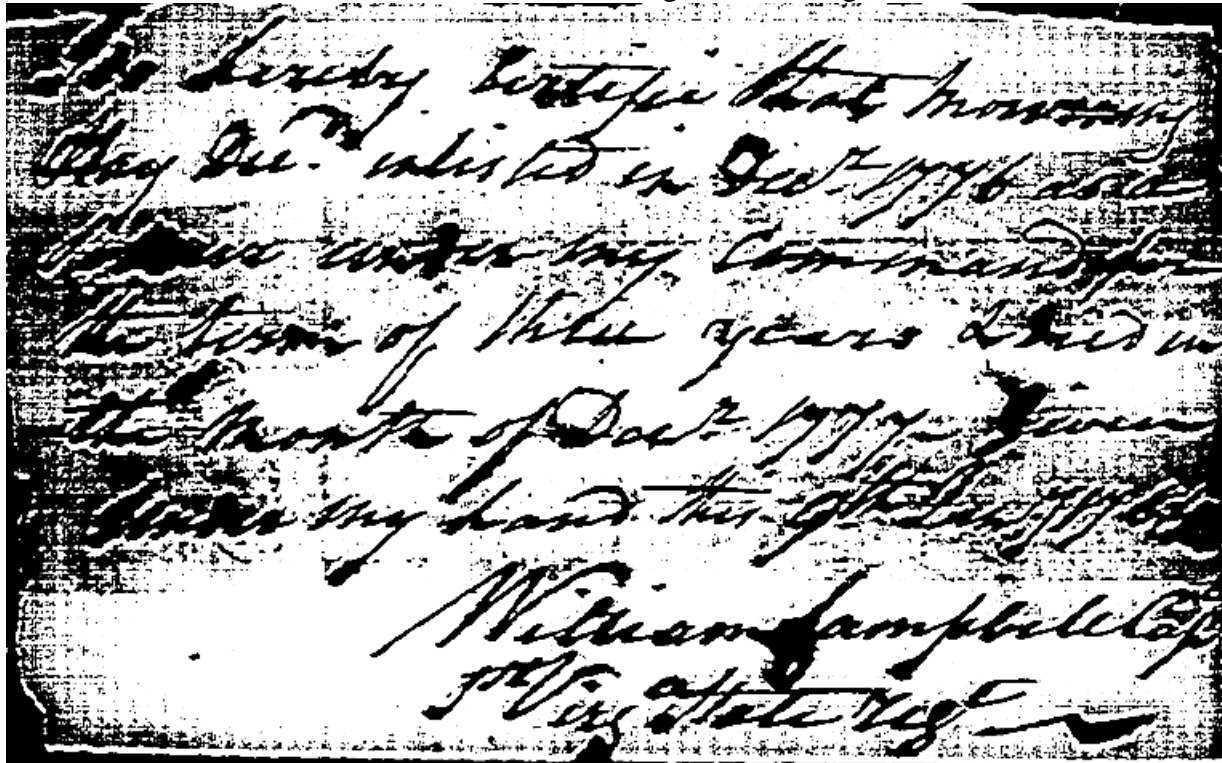 I do hereby Certifie that Mourning
Clay Dec.d inlisted in Decr. 1776 as a
under my Command for
the term of three years & died in
the Month of Decr. 1777 Given
Under my hand this 9th
William Campbell Capt
Virga State Regt